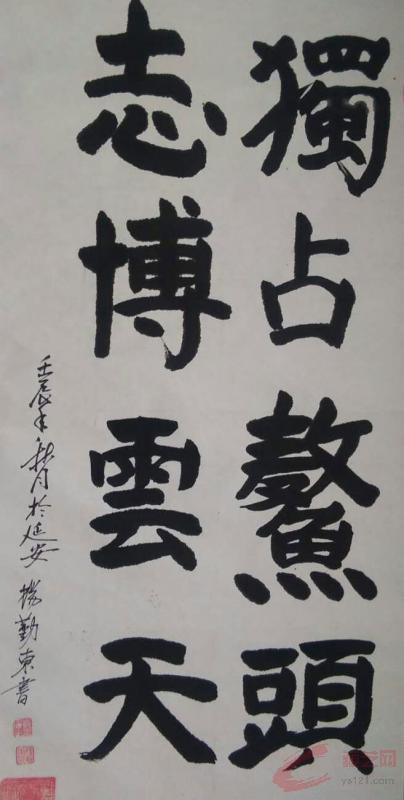 獨占鰲頭
志博雲天
壬辰年秋月於延安 勤東書
ys121.com